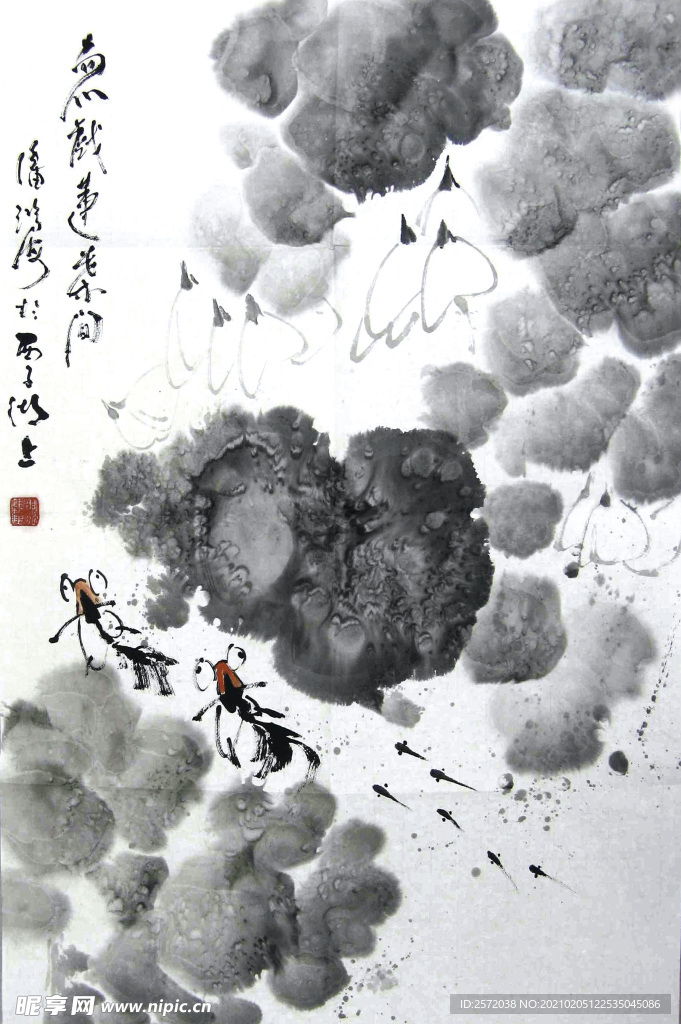 鱼戏莲叶间
潘鸿海于西子湖上
昵享网 www.nipic.cn
ID:2572038 NO:20210205122535045086